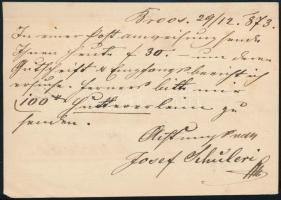 Kroos. 29/12. 873.
In einer Postanweisung sende
Ihnen heute f 30.— um deren
Gutschrift & Empfangsbericht ich
ersuche. Ferners bitte mir
100 zu
senden.
Achtungsvoll
Josef Schuleri